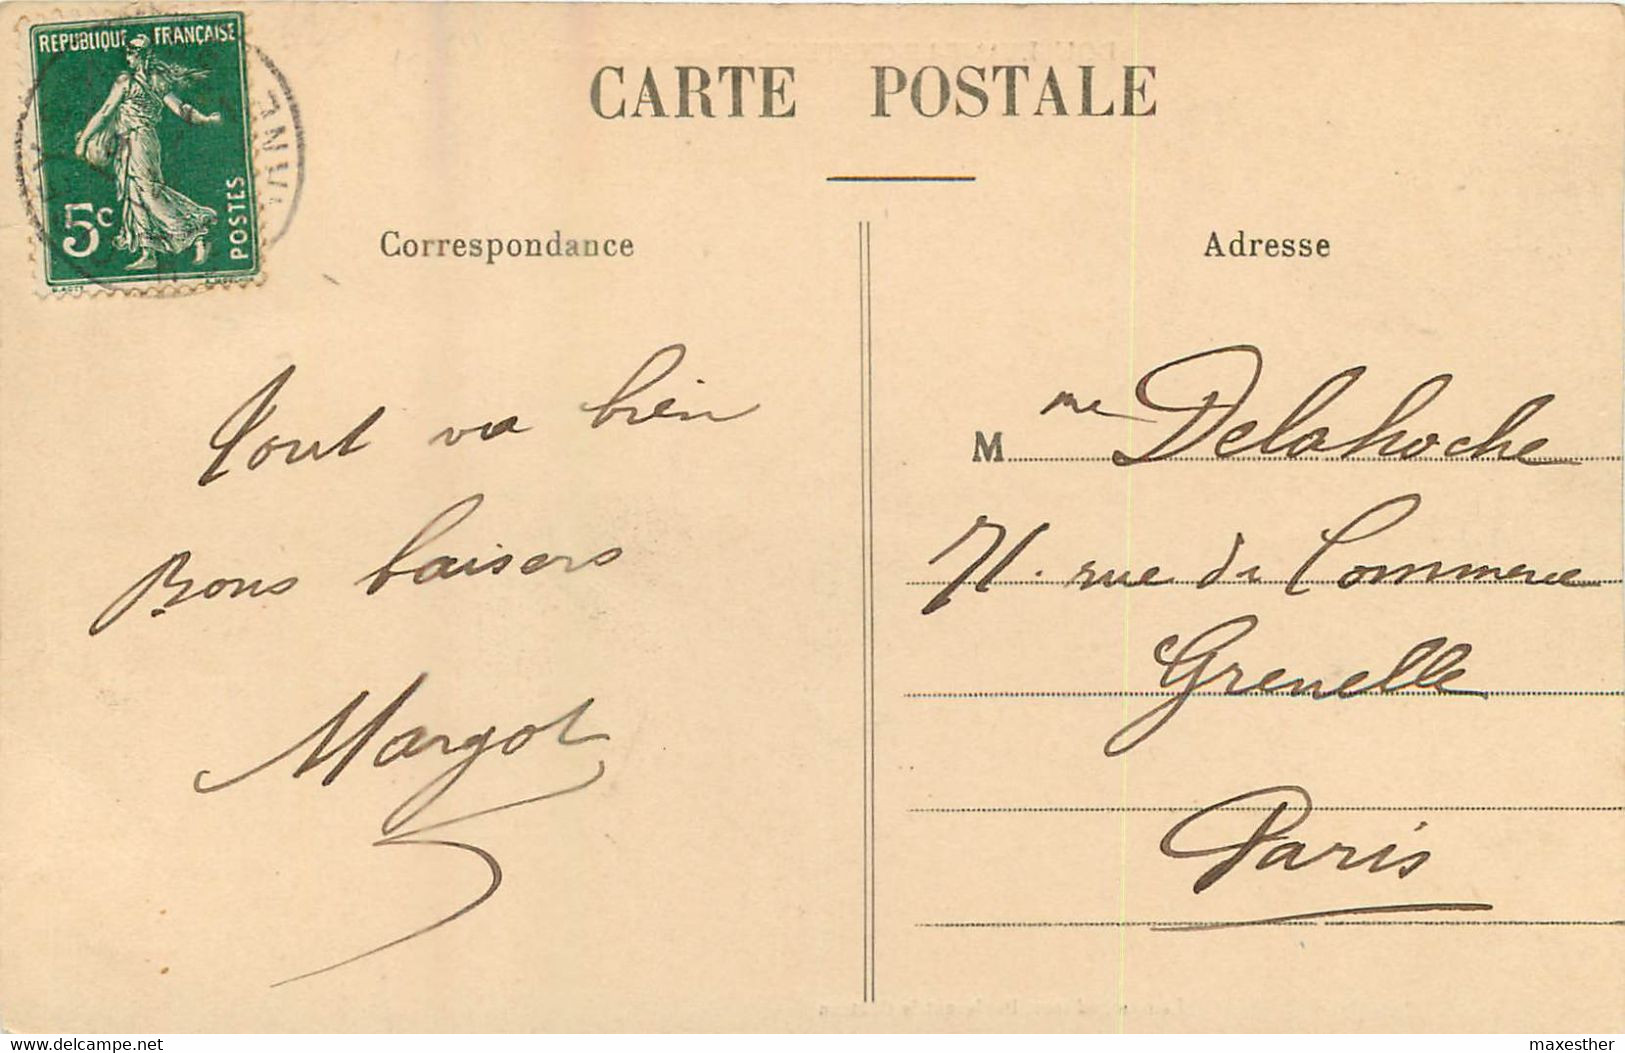 REPUBLIQUE FRANÇAISE
5c
POSTES
CARTE POSTALE
Correspondance
Adresse
Tout va bien
Bons baisers
Margot
Mme Delahoche
71. rue du Commerce
Grenelle
Paris
delcampe.net
maxesther